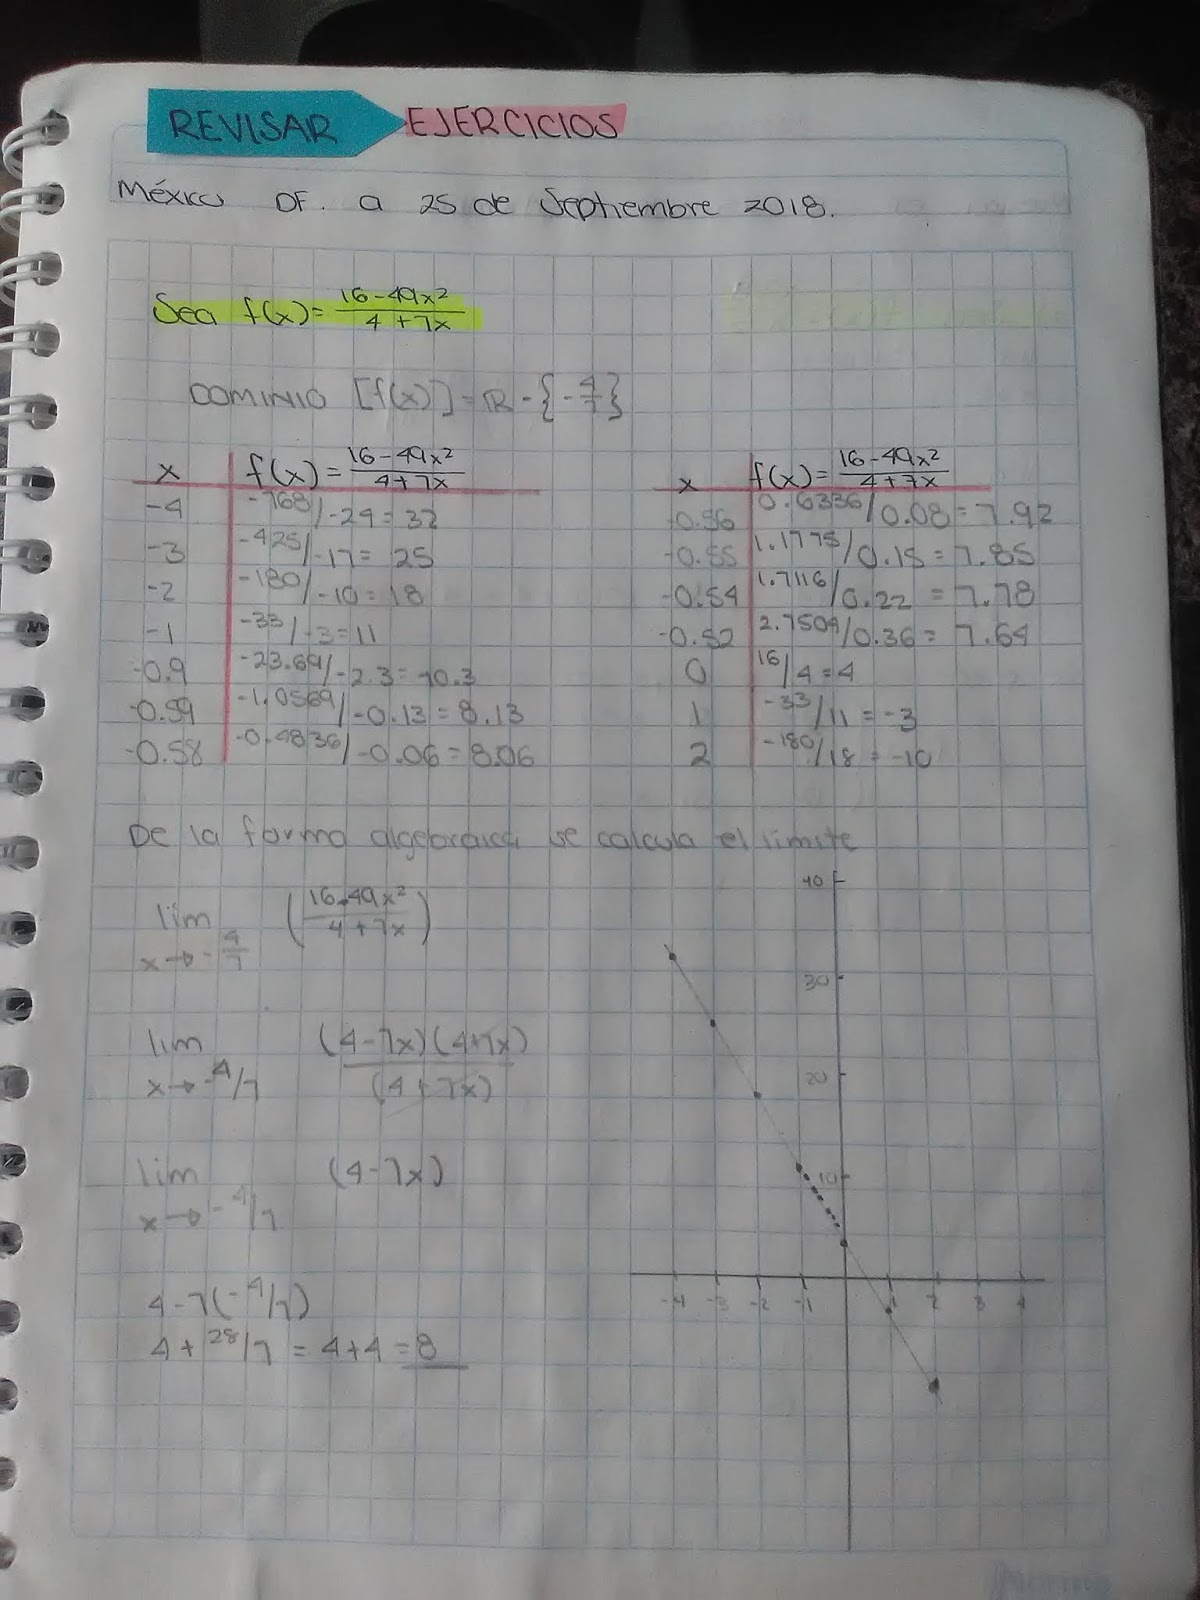 REVISAR EJERCICIOS
México DF. a 25 de Septiembre 2018.
Sea f(x)= 16-49x²/4+7x
DOMINIO [f(x)]=ℝ-{-4/7}
x f(x)= 16-49x²/4+7x
-4 -768/-24=32
-3 -425/-17= 25
-2 -180/-10=18
-1 -33/-3=11
-0.9 -23.69/-2.3=10.3
-0.59 -1.0569/-0.13=8.13
-0.58 -0.4836/-0.06=8.06
x f(x)= 16-49x²/4+7x
-0.56 0.6336/0.08=7.92
-0.55 1.1775/0.15=7.85
-0.54 1.7116/0.22=7.78
-0.52 2.7504/0.36=7.64
0 16/4=4
1 -33/11=-3
2 -180/18=-10
De la forma algebraica se calcula el limite
lim x→-4/7 (16-49x²/4+7x)
lim x→-4/7 (4-7x)(4+7x)/(4+7x)
lim x→-4/7 (4-7x)
4-7(-4/7)
4+28/7=4+4=8
40
30
20
10
-4 -3 -2 -1 1 2 3 4
Norma